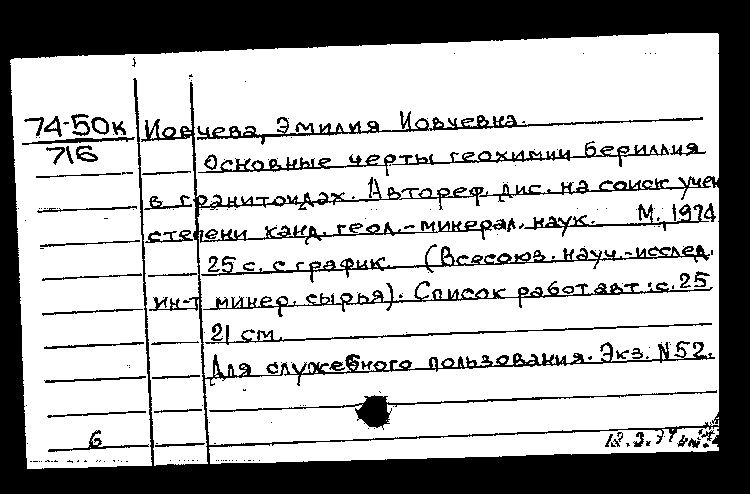 74-50к Иовчева, Эмилия Иовчевна.
716
Основные черты геохимии бериллия
в гранитоидах. Автореф. дис. на соиск. учен
степени канд. геол.-минерал. наук. М., 1974
25 с. с график. (Всесоюз. науч.-исслед.
ин-т минер. сырья). Список работ авт.: с. 25
21 см.
Для служебного пользования. Экз. N52.
6